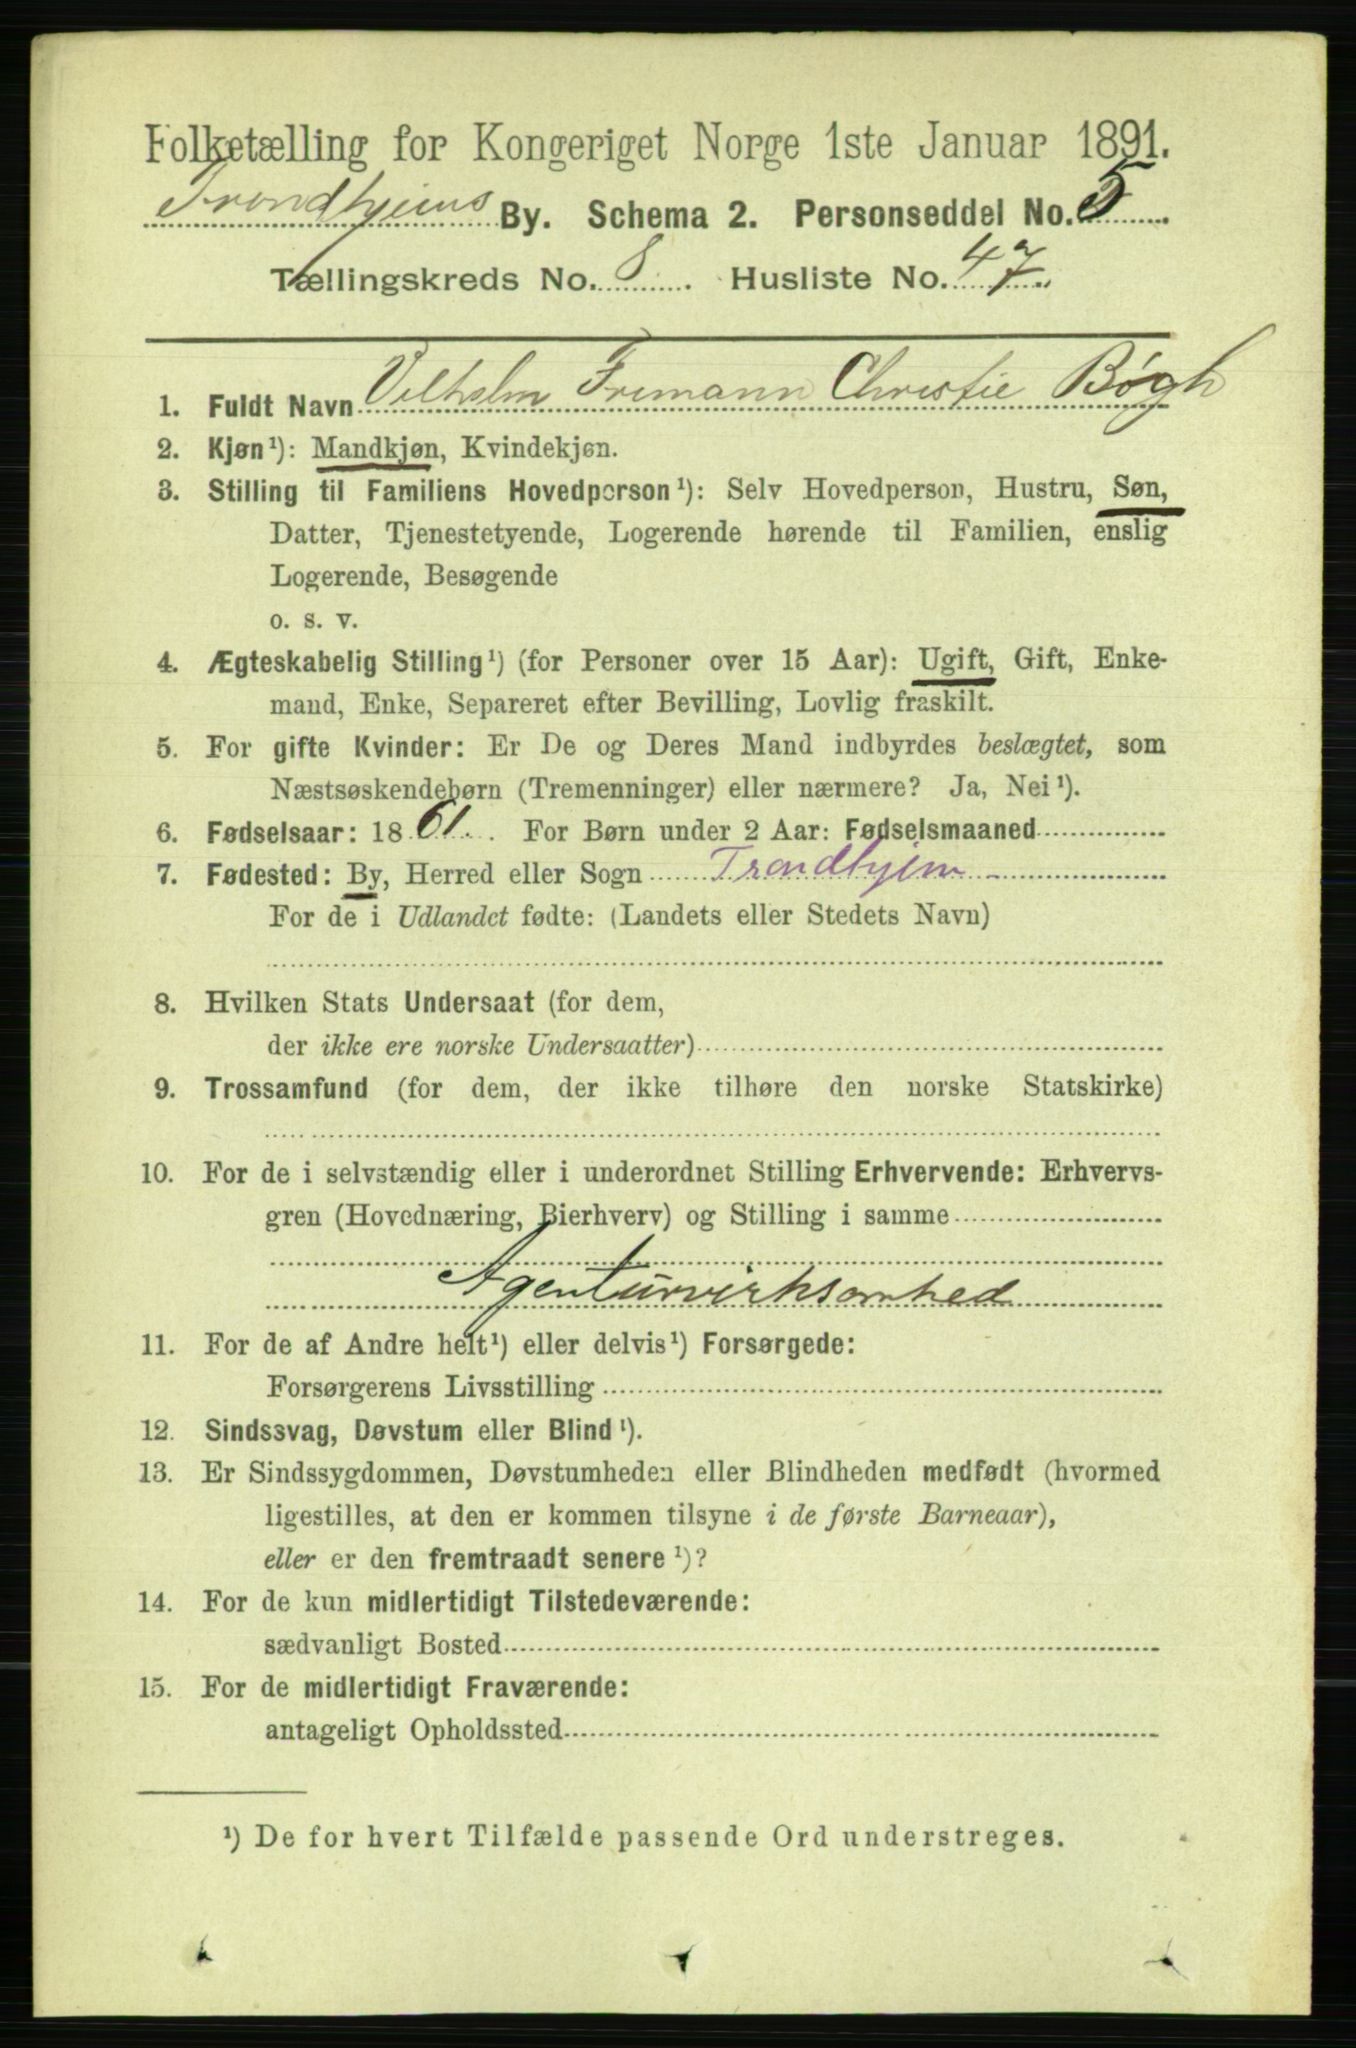 Folketælling for Kongeriget Norge 1ste Januar 1891.
Trondhjems By. Schema 2. Personseddel No. 5
Tællingskreds No. 8. Husliste No. 47.
1. Fuldt Navn Vilhelm Frimann Christie Bøgh
2. Kjøn¹): Mandkjøn, Kvindekjøn.
3. Stilling til Familiens Hovedperson¹): Selv Hovedperson, Hustru, Søn,
Datter, Tjenestetyende, Logerende hørende til Familien, enslig
Logerende, Besøgende
o. s. v.
4. Ægteskabelig Stilling¹) (for Personer over 15 Aar): Ugift, Gift, Enke-
mand, Enke, Separeret efter Bevilling, Lovlig fraskilt.
5. For gifte Kvinder: Er De og Deres Mand indbyrdes beslægtet, som
Næstsøskendebørn (Tremenninger) eller nærmere? Ja, Nei¹).
6. Fødselsaar: 1861. For Børn under 2 Aar: Fødselsmaaned
7. Fødested: By, Herred eller Sogn Trondhjem -
For de i Udlandet fødte: (Landets eller Stedets Navn)
8. Hvilken Stats Undersaat (for dem,
der ikke ere norske Undersaatter)
9. Trossamfund (for dem, der ikke tilhøre den norske Statskirke)
10. For de i selvstændig eller i underordnet Stilling Erhvervende: Erhvervs-
gren (Hovednæring, Bierhverv) og Stilling i samme
Agenturvirksomhed
11. For de af Andre helt¹) eller delvis¹) Forsørgede:
Forsørgerens Livsstilling
12. Sindssvag, Døvstum eller Blind¹).
13. Er Sindssygdommen, Døvstumheden eller Blindheden medfødt (hvormed
ligestilles, at den er kommen tilsyne i de første Barneaar),
eller er den fremtraadt senere¹)?
14. For de kun midlertidigt Tilstedeværende:
sædvanligt Bosted
15. For de midlertidigt Fraværende:
antageligt Opholdssted
¹) De for hvert Tilfælde passende Ord understreges.